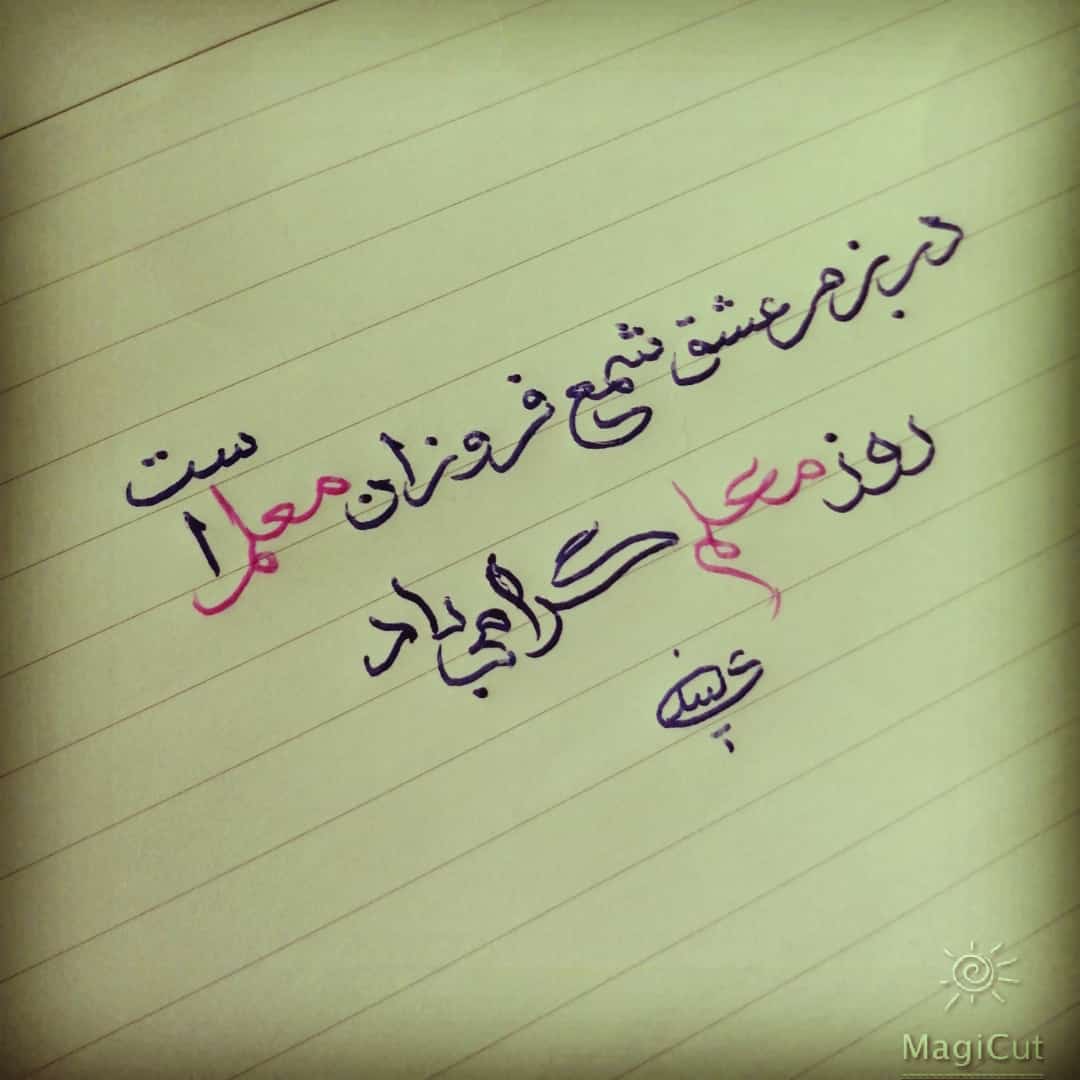 در بزم عشق شمع فروزان معلم است
روز معلم گرامی باد
MagiCut